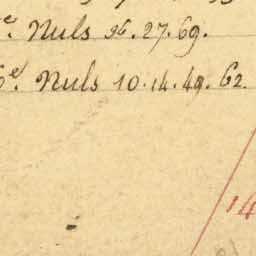 e. Nuls 26.27.69.
6e. Nuls 10.14.49.62.
14